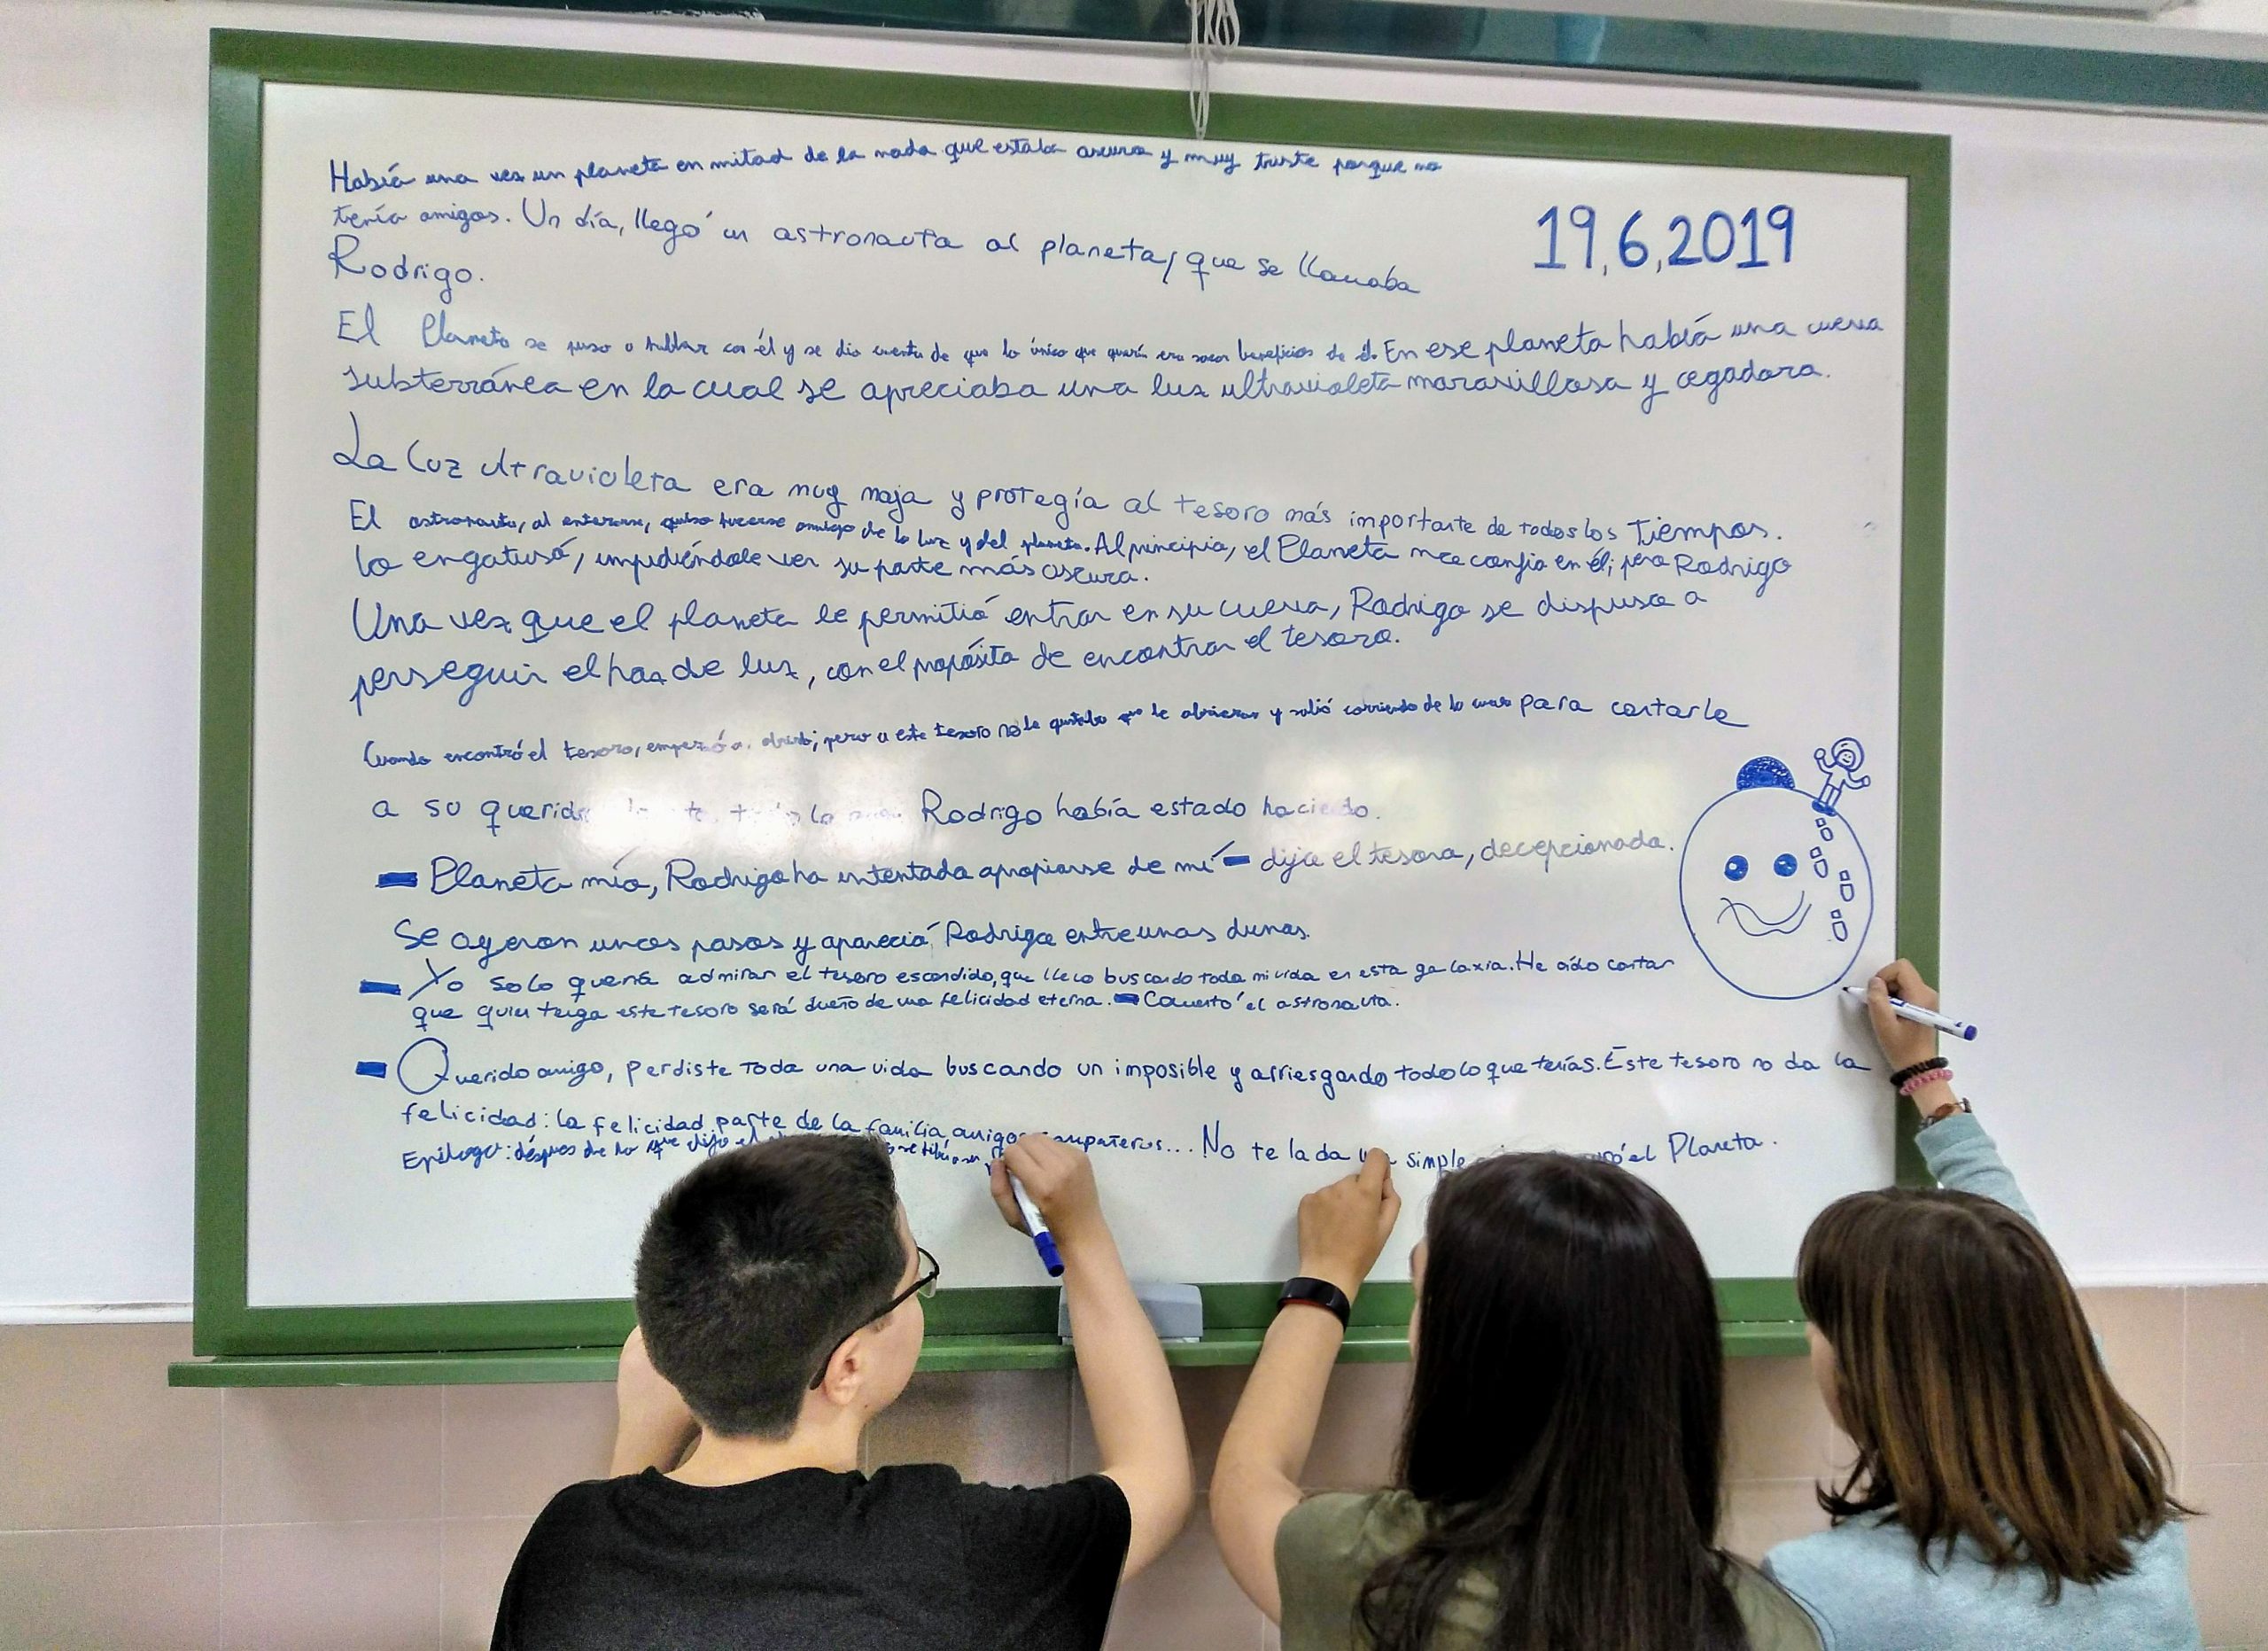 Había una vez un planeta en mitad de la nada que estaba oscuro y muy triste porque no
tenía amigos. Un día, llegó un astronauta al planeta, que se llamaba
Rodrigo.
19,6,2019
El Planeta se puso a hablar con él y se dio cuenta de que lo único que quería era sacar beneficios de él. En ese planeta había una cueva
subterránea en la cual se apreciaba una luz ultravioleta maravillosa y cegadora.
La luz ultravioleta era muy maja y protegía al tesoro más importante de todos los Tiempos.
El astronauta, al enterarse, quiso hacerse amigo de la luz y del planeta. Al principio, el Planeta no confía en él; pero Rodrigo
lo engatusó, impidiéndole ver su parte más oscura.
Una vez que el planeta le permitió entrar en su cueva, Rodrigo se dispuso a
perseguir el haz de luz, con el propósito de encontrar el tesoro.
Cuando encontró el tesoro, empezó a abrirlo; pero a este tesoro no le gustaba que le abrieran y salió corriendo de la cueva para contarle
a su querido Rodrigo había estado haciendo.
- Planeta mío, Rodrigo ha intentado apropiarse de mí - dijo el tesoro, decepcionado.
Se oyeron unos pasos y apareció Rodrigo entre unas dunas.
- Yo solo quería admirar el tesoro escondido, que llevo buscando toda mi vida en esta galaxia. He oído contar
que quien tenga este tesoro será dueño de una felicidad eterna. - Comentó el astronauta.
- Querido amigo, perdiste toda una vida buscando un imposible y arriesgando todo lo que tenías. Este tesoro no da la
felicidad: la felicidad parte de la familia, amigos, compañeros... No te la da un simple el Planeta.
Epílogo: después de lo que dijo el